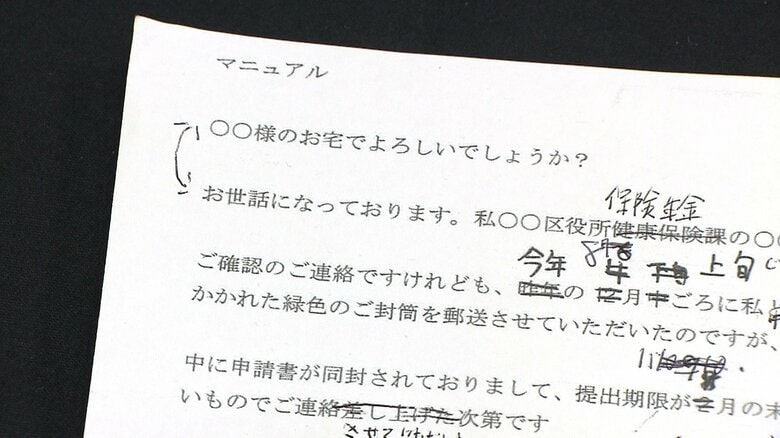 マニュアル
〇〇様のお宅でよろしいでしょうか?
保険年金
お世話になっております。私〇〇区役所健康保険課の〇〇
今年 上旬
ご確認のご連絡ですけれども、昨年の12月中ごろに私ど
かかれた緑色のご封筒を郵送させていただいたのですが、
中に申請書が同封されておりまして、提出期限が2月の末
いものでご連絡差し上げた次第です
させていただいた